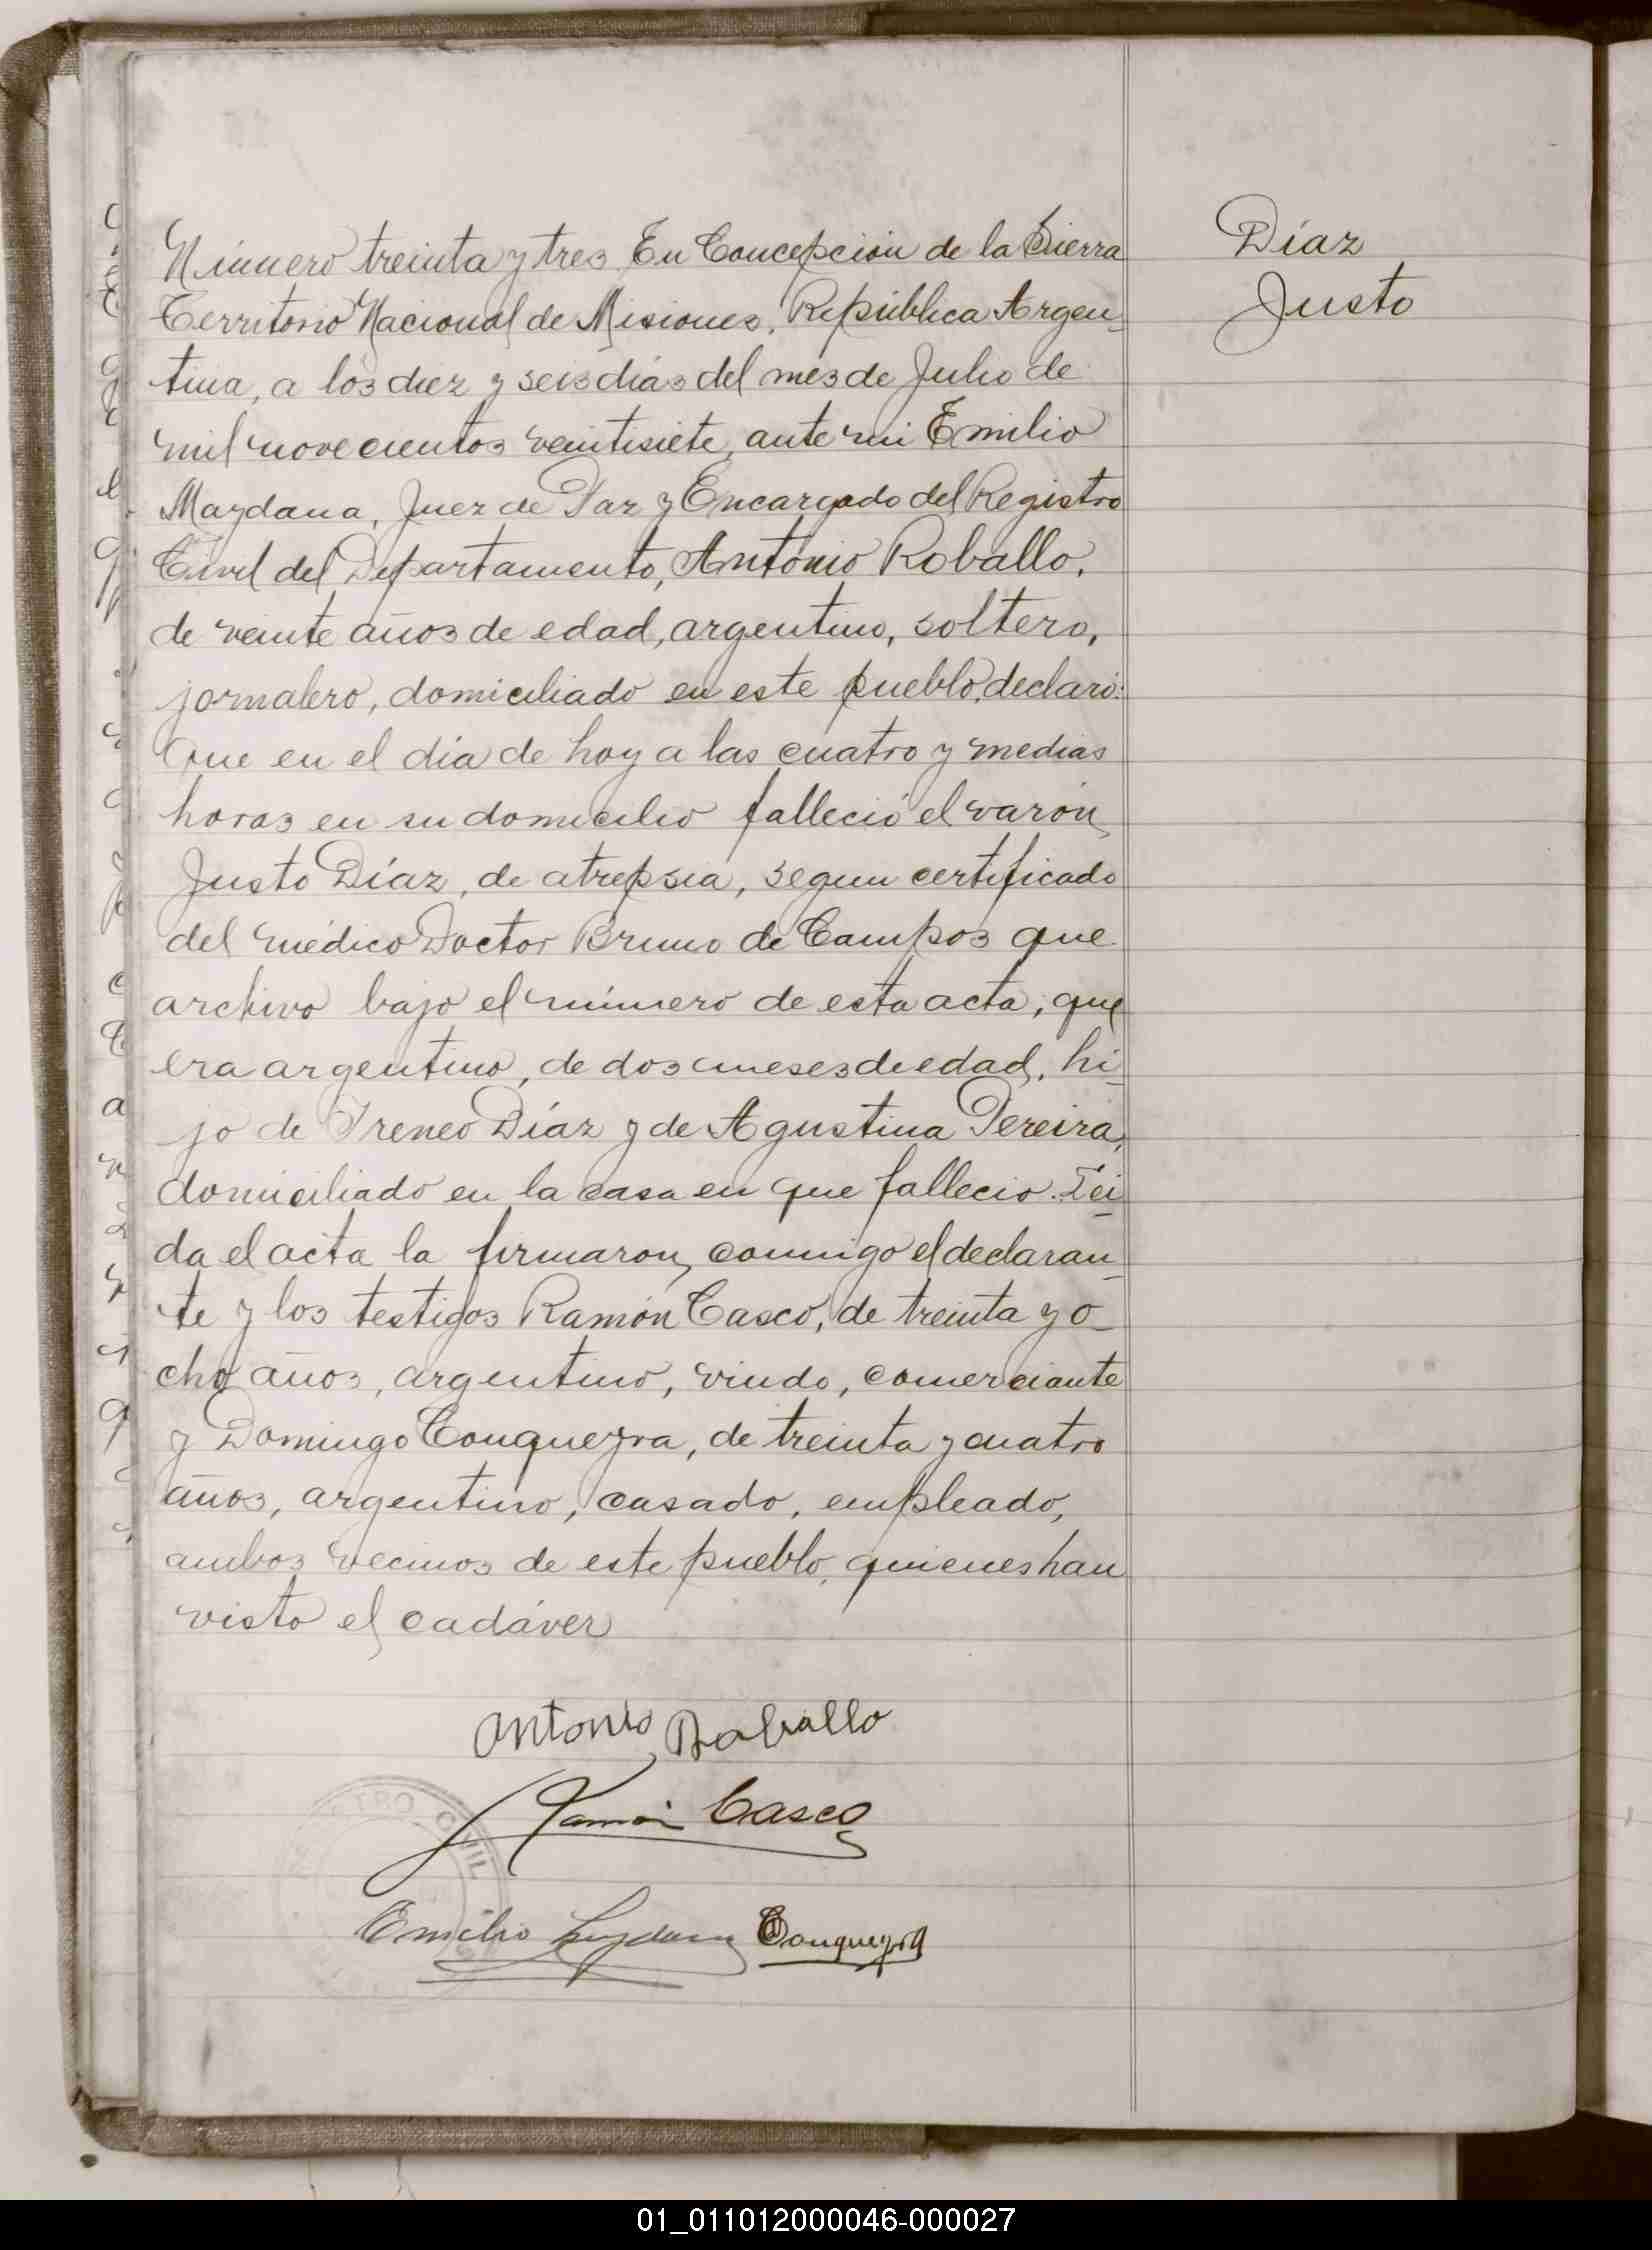 Díaz
Justo
Número treinta y tres. En Concepción de la Sierra
Territorio Nacional de Misiones, República Argen-
tina, a los diez y seis días del mes de Julio de
mil novecientos veintisiete, ante mi Emilio
Maydana, Juez de Paz y Encargado del Registro
Civil del Departamento, Antonio Roballo,
de veinte años de edad, argentino, soltero,
jornalero, domiciliado en este pueblo, declaró:
Que en el día de hoy a las cuatro y medias
horas en su domicilio falleció el varón
Justo Díaz, de atrepsia, segun certificado
del médico Doctor Bruno de Campos que
archivo bajo el número de esta acta; que
era argentino, de dos meses de edad, hi-
jo de Ireneo Díaz y de Agustina Pereira,
domiciliado en la casa en que fallecio. Leí-
da el acta la firmaron conmigo el declaran-
te y los testigos Ramón Casco, de treinta y o-
cho años, argentino, viudo, comerciante
y Domingo Conqueyra, de treinta y cuatro
años, argentino, casado, empleado,
ambos vecinos de este pueblo, quienes han
visto el cadáver
Antonio Roballo
Ramón Casco
Emilio Maydana Conqueyra
TRO CIVIL
01_011012000046-000027